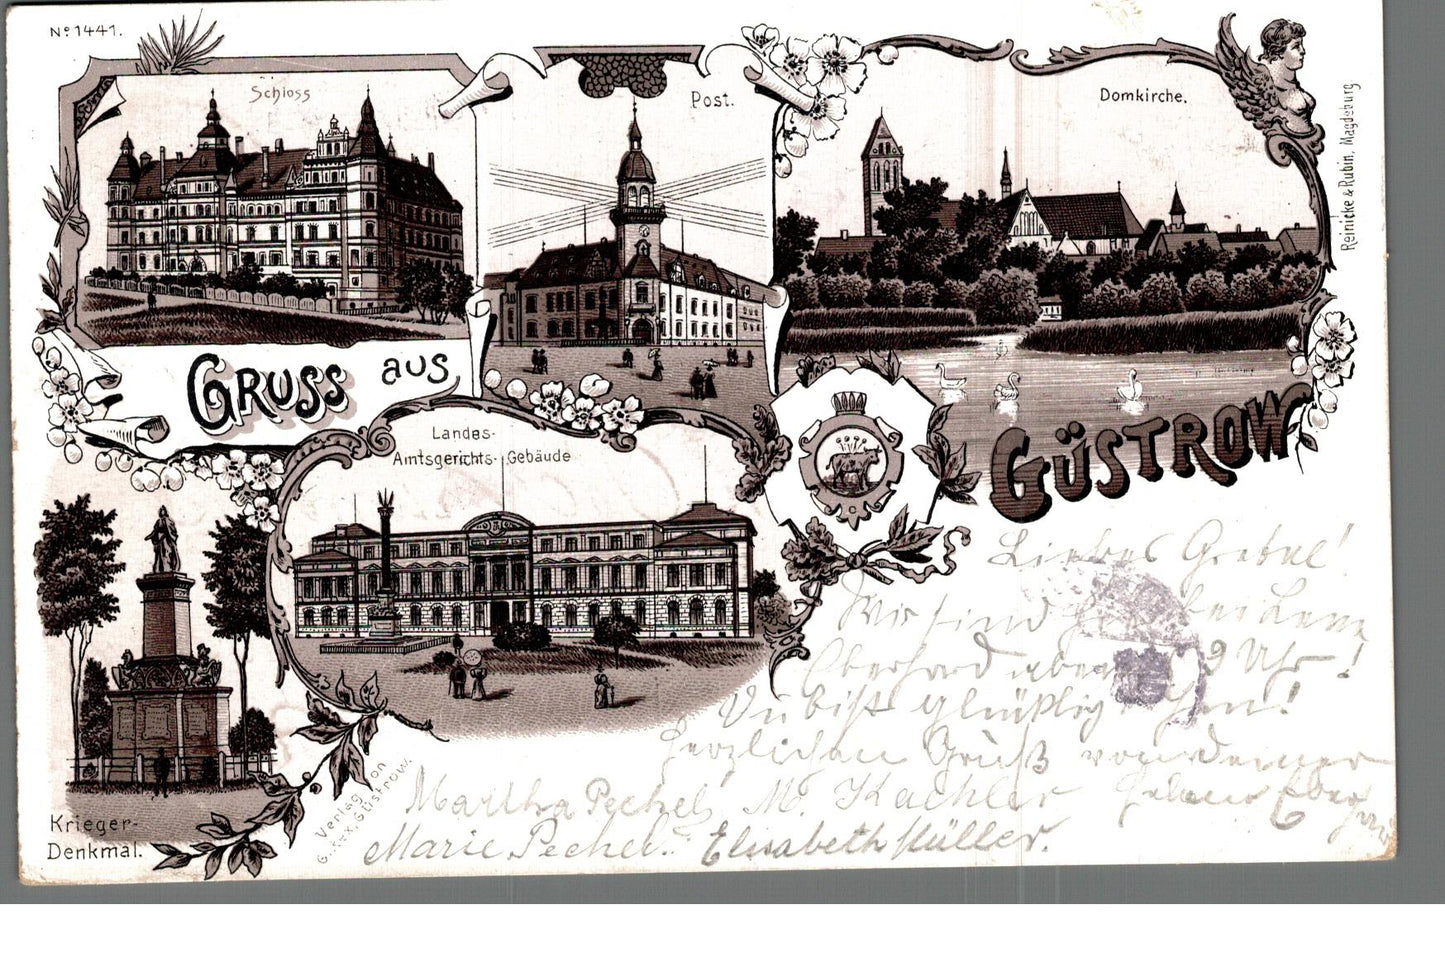 Nº 1441.
Schloss
Post.
Domkirche.
Reinicke & Rubin, Magdeburg
GRUSS aus
GÜSTROW
Landes-
Amtsgerichts-Gebäude
Krieger-
Denkmal.
Verlag von
Güstrow.
Liebes Gretel!
Wir sind bei
Eberhard aber 9 Uhr!
Du bist
Herzlichen Gruß von Deiner
Martha Pechel M. Kachler
Marie Pechel. Elisabeth Müller.